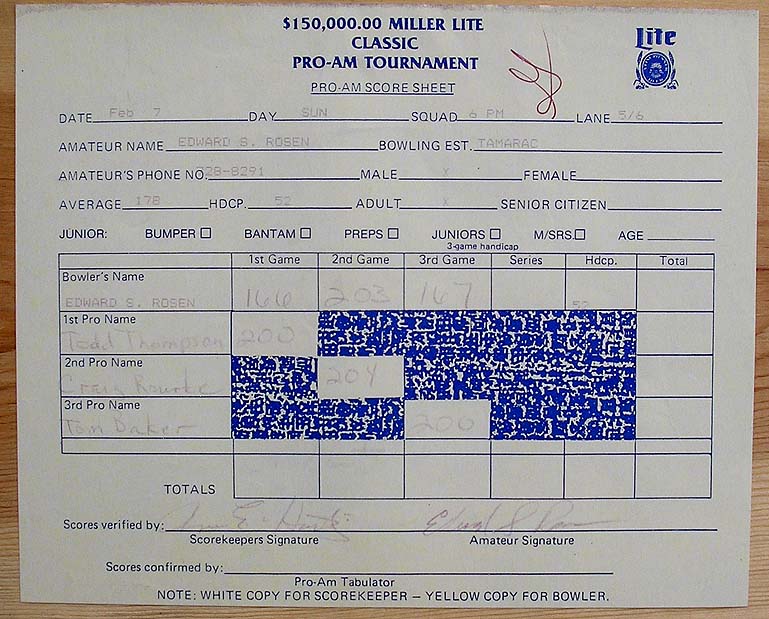 $150,000.00 MILLER LITE
CLASSIC
PRO-AM TOURNAMENT
Lite
PRO-AM SCORE SHEET
DATE Feb 7 DAY SUN SQUAD 6 PM LANE 5/6
AMATEUR NAME EDWARD S. ROSEN BOWLING EST. TAMARAC
AMATEUR'S PHONE NO. 728-8291 MALE X FEMALE
AVERAGE 178 HDCP. 52 ADULT X SENIOR CITIZEN
JUNIOR: BUMPER BANTAM PREPS JUNIORS M/SRS. AGE
3-game handicap
1st Game 2nd Game 3rd Game Series Hdcp. Total
Bowler's Name
EDWARD S. ROSEN 166 203 167 52
1st Pro Name
Todd Thompson 200
2nd Pro Name
Craig Rourke 204
3rd Pro Name
Tom Daker 200
TOTALS
Scores verified by:
Scorekeepers Signature Amateur Signature
Scores confirmed by:
Pro-Am Tabulator
NOTE: WHITE COPY FOR SCOREKEEPER — YELLOW COPY FOR BOWLER.